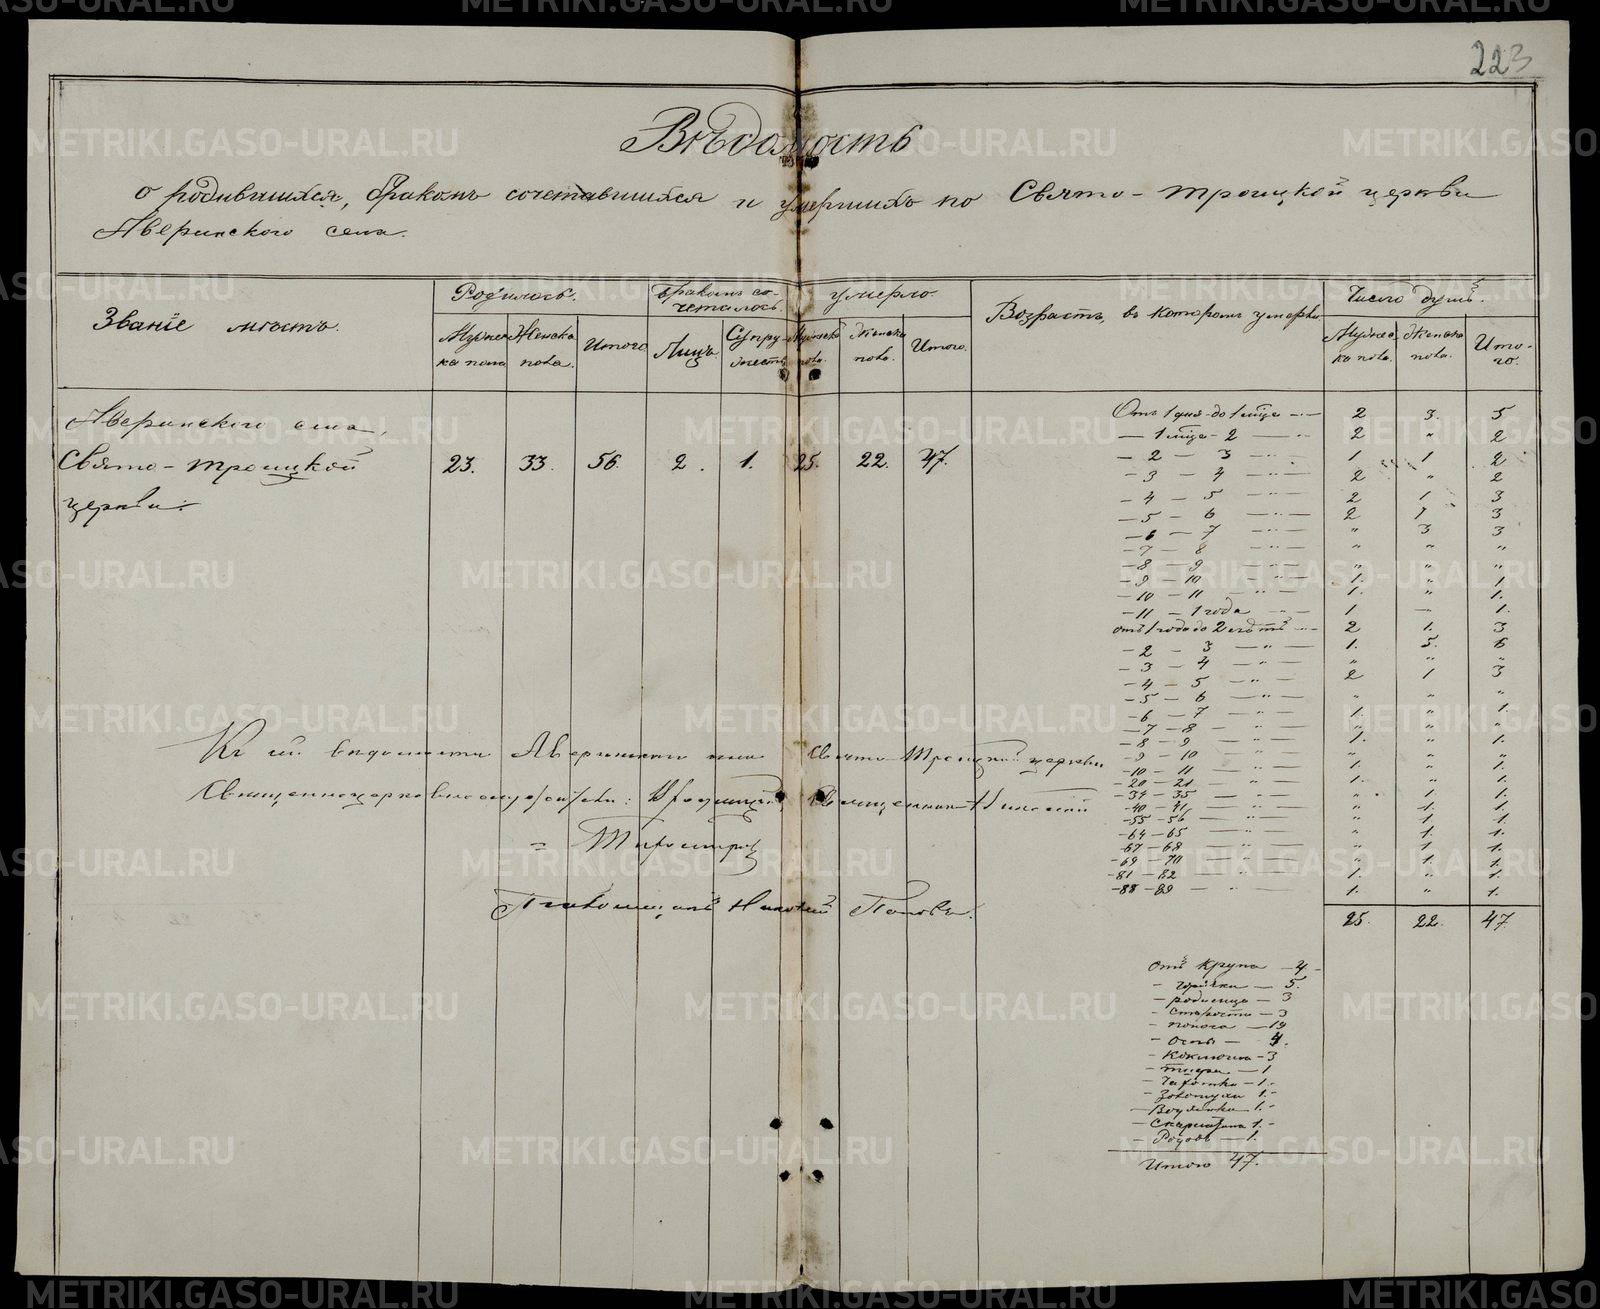 223
Вѣдомость
о родившихся, бракомъ сочетавшихся и умершихъ по Свято-Троицкой церкви
Аверинского села.
Званіе мѣстъ.
Родилось.
Бракомъ со-
четалось.
Умерло.
Возрастъ, въ которомъ умерли
Число душъ.
Мужеска пола
Женска пола.
Итого
Лицъ
Супружествъ
Мужеска пола.
Женска пола.
Итого.
Мужеска пола.
Женска пола.
Итого.
Аверинского села,
Свято-Троицкой
церкви:
23. 33. 56. 2. 1. 25. 22. 47.
Отъ 1 дня до 1 мѣца -"- 2 3. 5
— 1 мѣца - 2 — " 2 " 2
— 2 — 3 -"- 1 1 2
— 3 — 4 -"- 2 " 2
— 4 — 5 -"- 2 1 3
— 5 — 6 -"- 2 1 3
— 6 — 7 -"- " 3 3
— 7 — 8 -"- " " "
— 8 — 9 -"- " " "
— 9 — 10 -"- 1. " 1
— 10 — 11 -"- 1. " 1.
— 11 — 1 года -"- 1 — 1.
отъ 1 года до 2 -"- 2 1. 3
— 2 — 3 -"- 1. 5. 6
— 3 — 4 -"- " " "
— 4 — 5 -"- 2 1 3
— 5 — 6 -"- " " "
— 6 — 7 -"- 1. " 1.
— 7 — 8 — " " " "
— 8 — 9 -"- 1. " 1.
— 9 — 10 — " " " "
— 10 — 11 -"- 1. " 1.
— 20 — 21 — " 1. " 1.
— 34 — 35 — " " 1 1.
— 40 — 41 -"- " 1. 1.
— 55 — 56 -"- " 1. 1.
— 64 — 65 -"- " 1. 1.
— 67 — 68 -"- " 1 1.
— 69 — 70 -"- " 1. 1.
— 81 — 82 -"- 1. " 1.
— 88 — 89 — " 1. " 1.
25. 22. 47
Къ сей вѣдомости Аверинского села Свято-Троицкой церкви
Священноцерковнослужители: Священникъ Николай
Псаломщикъ Николай Поповъ.
Отъ Крупа — 4 -
- горячки — 5.
- родимца — 3
- старости — 3
- поноса — 19
- Оспы — 4.
- Коклюша - 3
- тифа — 1
- Чахотки — 1.-
- Золотухи 1.-
- Водянки 1.-
- Скарлатина 1.-
- Родовъ — 1.
Итого 47.
METRIKI.GASO-URAL.RU